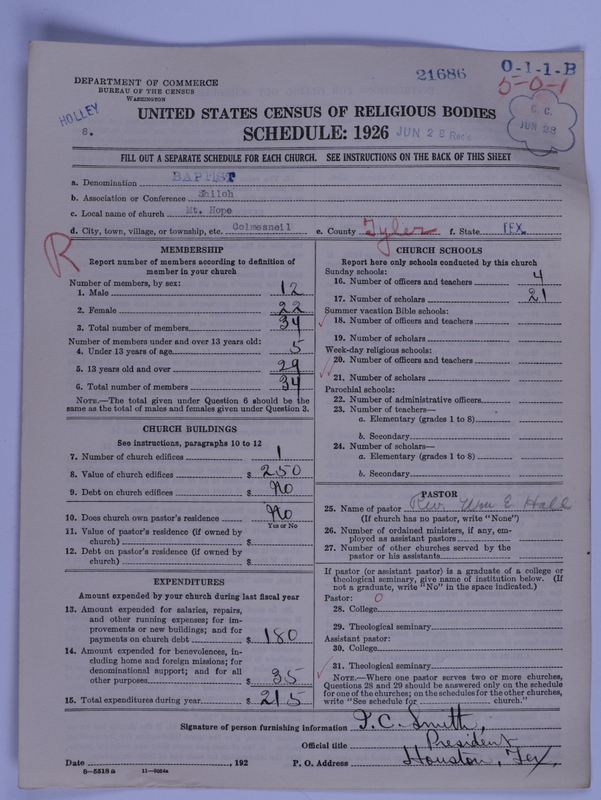 21686
O-1-1-B
5-0-1
DEPARTMENT OF COMMERCE
BUREAU OF THE CENSUS
WASHINGTON
HOLLEY
8.
UNITED STATES CENSUS OF RELIGIOUS BODIES
SCHEDULE: 1926
JUN 28 Rec'd
S. C.
JUN 28
FILL OUT A SEPARATE SCHEDULE FOR EACH CHURCH. SEE INSTRUCTIONS ON THE BACK OF THIS SHEET
a. Denomination BAPTIST
b. Association or Conference Shiloh
c. Local name of church Mt. Hope
d. City, town, village, or township, etc. Colmesneil e. County Tyler f. State TEX.
R
MEMBERSHIP
Report number of members according to definition of
member in your church
Number of members, by sex:
1. Male 12
2. Female 22
3. Total number of members 34
Number of members under and over 13 years old:
4. Under 13 years of age 5
5. 13 years old and over 29
6. Total number of members 34
NOTE.—The total given under Question 6 should be the
same as the total of males and females given under Question 3.
CHURCH BUILDINGS
See instructions, paragraphs 10 to 12
7. Number of church edifices 1
8. Value of church edifices $ 250
9. Debt on church edifices $ No
10. Does church own pastor's residence No
Yes or No
11. Value of pastor's residence (if owned by
church) $
12. Debt on pastor's residence (if owned by
church) $
EXPENDITURES
Amount expended by your church during last fiscal year
13. Amount expended for salaries, repairs,
and other running expenses; for im-
provements or new buildings; and for
payments on church debt $ 180
14. Amount expended for benevolences, in-
cluding home and foreign missions; for
denominational support; and for all
other purposes $ 35
15. Total expenditures during year $ 215
CHURCH SCHOOLS
Report here only schools conducted by this church
Sunday schools:
16. Number of officers and teachers 4
17. Number of scholars 21
Summer vacation Bible schools:
18. Number of officers and teachers
19. Number of scholars
Week-day religious schools:
20. Number of officers and teachers
21. Number of scholars
Parochial schools:
22. Number of administrative officers
23. Number of teachers—
a. Elementary (grades 1 to 8)
b. Secondary
24. Number of scholars—
a. Elementary (grades 1 to 8)
b. Secondary
PASTOR
25. Name of pastor Rev. Wm E. Hall
(If church has no pastor, write "None")
26. Number of ordained ministers, if any, em-
ployed as assistant pastors
27. Number of other churches served by the
pastor or his assistants
If pastor (or assistant pastor) is a graduate of a college or
theological seminary, give name of institution below. (If
not a graduate, write "No" in the space indicated.)
Pastor: 0
28. College
29. Theological seminary
Assistant pastor:
30. College
31. Theological seminary
NOTE.—Where one pastor serves two or more churches,
Questions 28 and 29 should be answered only on the schedule
for one of the churches; on the schedules for the other churches,
write "See schedule for church."
Signature of person furnishing information P. C. Smith,
Official title President
Date , 192 P. O. Address Houston, Tex
8—5518 a 11—9054a